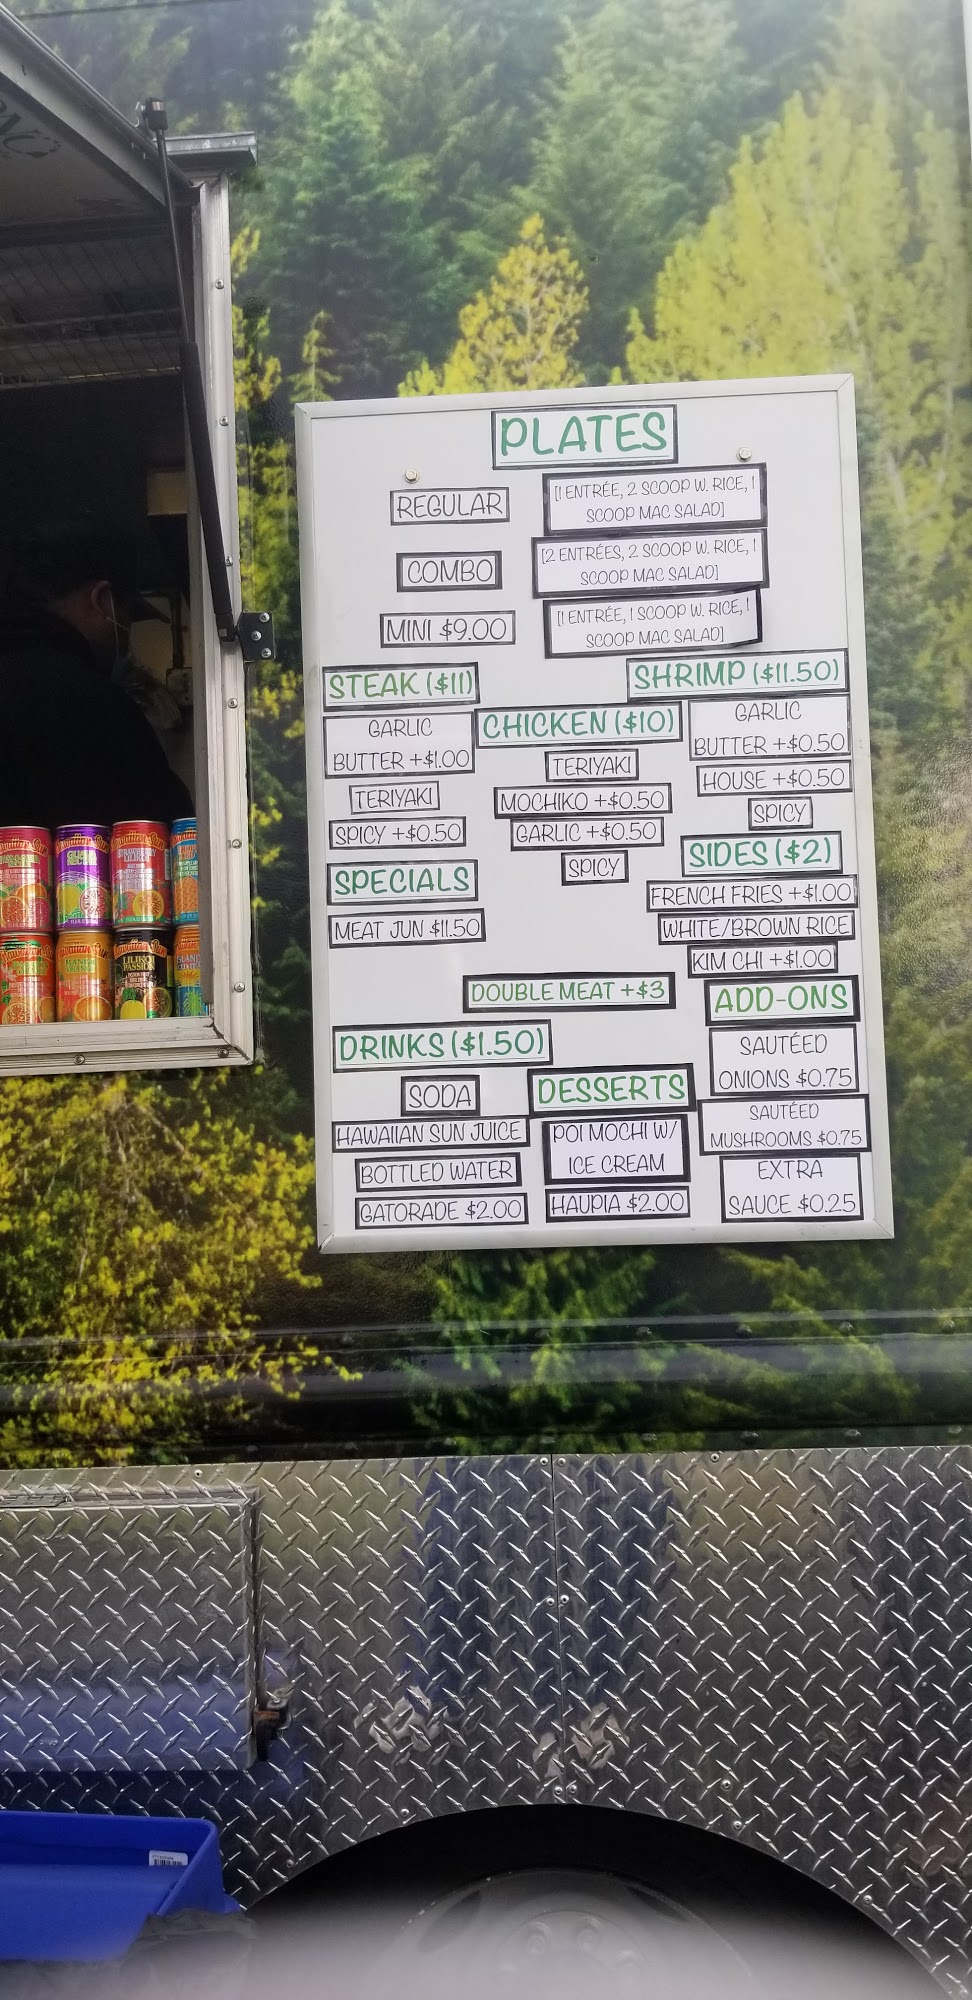 PLATES
REGULAR
[1 ENTRÉE, 2 SCOOP W. RICE, 1
SCOOP MAC SALAD]
COMBO
[2 ENTRÉES, 2 SCOOP W. RICE, 1
SCOOP MAC SALAD]
MINI $9.00
[1 ENTRÉE, 1 SCOOP W. RICE, 1
SCOOP MAC SALAD]
STEAK ($11)
GARLIC
BUTTER +$1.00
TERIYAKI
SPICY +$0.50
SPECIALS
MEAT JUN $11.50
CHICKEN ($10)
TERIYAKI
MOCHIKO +$0.50
GARLIC +$0.50
SPICY
SHRIMP ($11.50)
GARLIC
BUTTER +$0.50
HOUSE +$0.50
SPICY
SIDES ($2)
FRENCH FRIES +$1.00
WHITE/BROWN RICE
KIM CHI +$1.00
DOUBLE MEAT +$3
ADD-ONS
SAUTÉED
ONIONS $0.75
SAUTÉED
MUSHROOMS $0.75
EXTRA
SAUCE $0.25
DRINKS ($1.50)
SODA
HAWAIIAN SUN JUICE
BOTTLED WATER
GATORADE $2.00
DESSERTS
POI MOCHI W/
ICE CREAM
HAUPIA $2.00
Hawaiian Sun
LILIKOI
PASSION